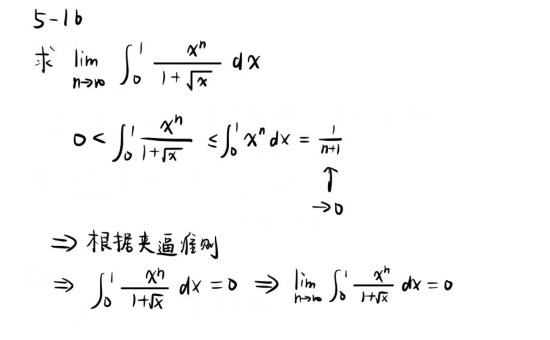 5-16
求 lim n→∞ ∫₀¹ xⁿ/(1+√x) dx
0 < ∫₀¹ xⁿ/(1+√x) ≤ ∫₀¹ xⁿ dx = 1/(n+1)
↑
→0
⇒ 根据夹逼准则
⇒ ∫₀¹ xⁿ/(1+√x) dx = 0 ⇒ lim n→∞ ∫₀¹ xⁿ/(1+√x) dx = 0